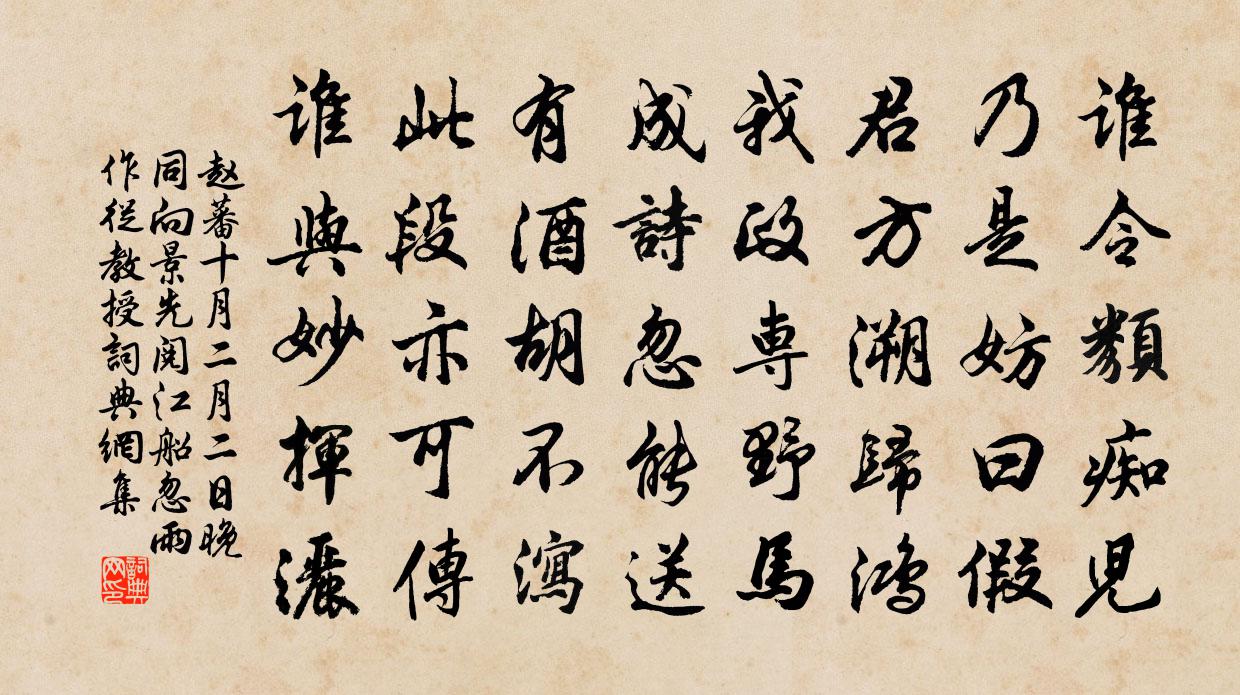 谁令類痴児
乃是妨曰假
君方溯歸鸿
我政専野馬
成詩忽能送
有酒胡不瀉
此段亦可傳
谁與妙揮灑
赵蕃十月二月二日晚
同向景先阅江船忽雨
作從教授詞典網集
詞典网印